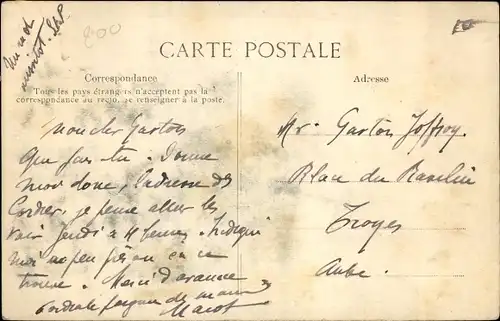 Un mot
aussitôt. S.V.P.
800
CARTE POSTALE
Correspondance
Tous les pays étrangers n'acceptent pas la
correspondance au recto, se renseigner à la poste.
Adresse
Mon cher Gaston
Que fais-tu. Donne
moi donc l'adresse des
Cordier, je pense aller les
voir jeudi à 11 heures. Indique
moi un peu où ça se
trouve. Merci d'avance
Cordiale poignée de main
Marot
Mr. Gaston Joffroy.
Place du
Troyes
Aube.